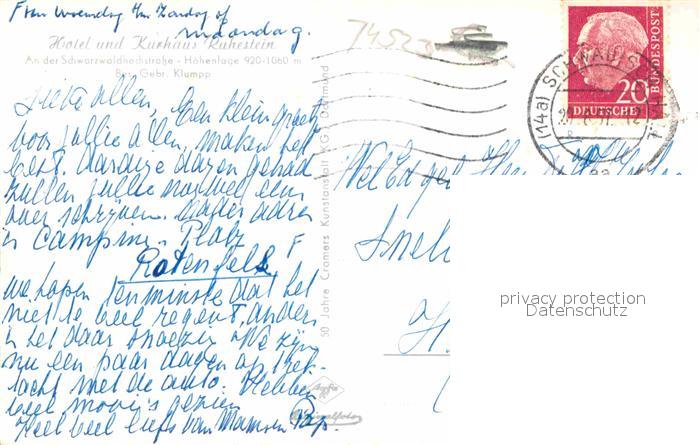 Fran Woensdag t/m Zondag of
maandag.
Hotel und Kurhaus Ruhestein
An der Schwarzwaldhochstraße - Höhenlage 920-1060 m
Bes. Gebr. Klumpp
74523
Lieve allen, Een klein groetje
voor jullie allen, maken het
best. Aardige dagen gehad
zullen jullie nog wel een
over schrijven. adres
is Camping-Platz
Rotenfels
we hopen tenminste dat het
niet te veel regent, anders
is het daar We zijn
nu een paar dagen op trek-
tocht met de auto. Hebben
veel moois gezien
Heel veel liefs van Mams en Pap.
50 Jahre Cramers Kunstanstalt KG, Dortmund
Agfa
DEUTSCHE
BUNDESPOST
20
(14a) SCHWÄB.
Wel Ed
Snel
H
privacy protection
Datenschutz